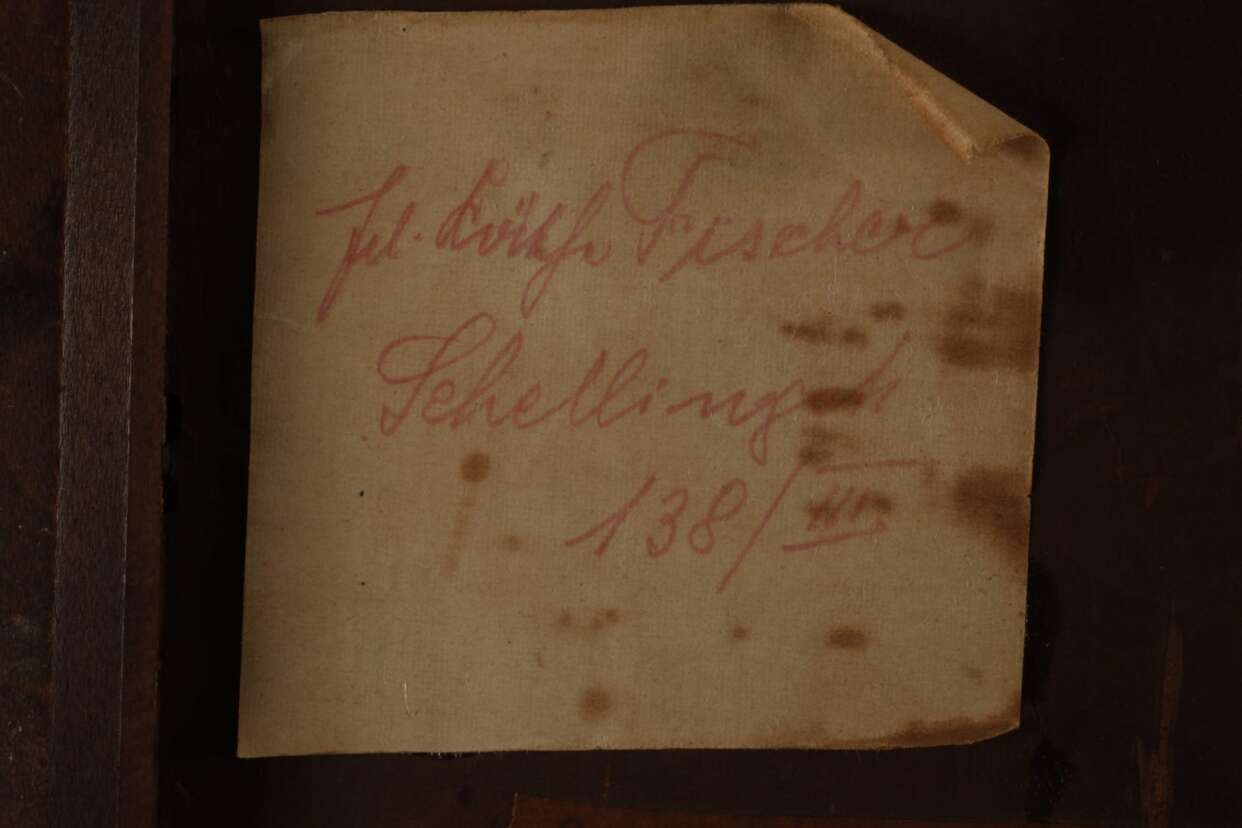 Frl. Käthe Fischer
Schellingstr
138/III